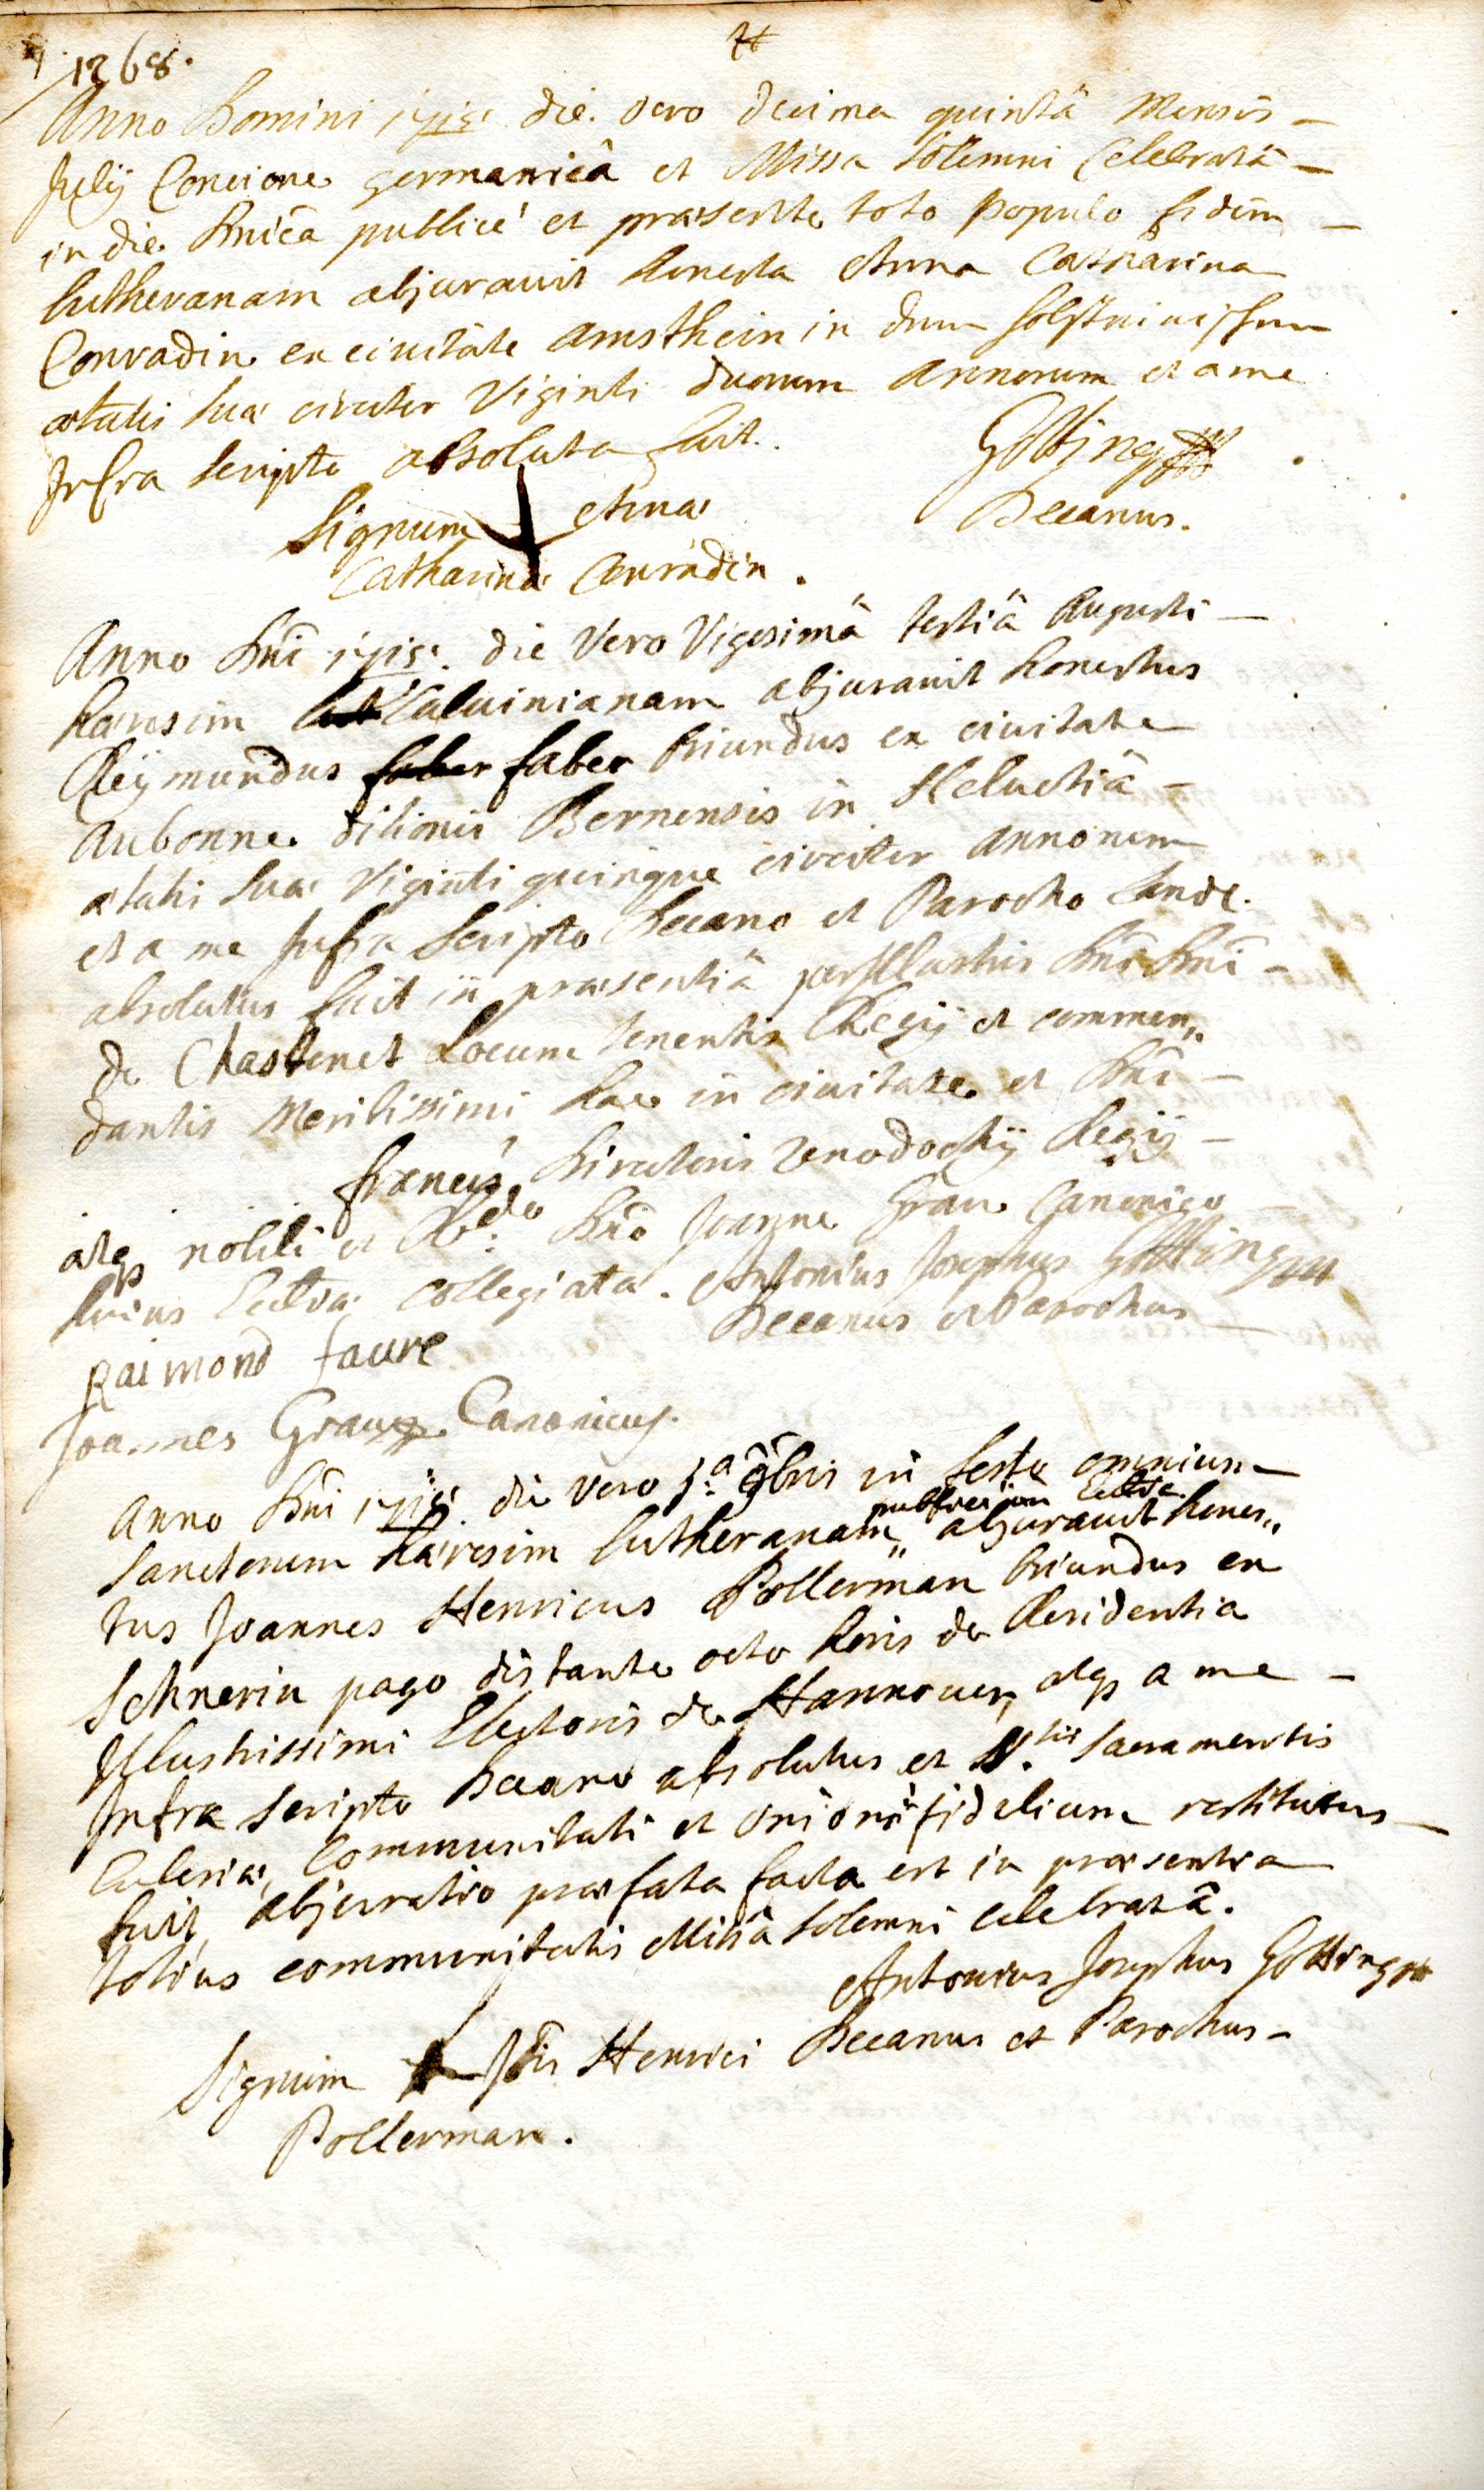 1268.
Anno Domini 1715. die. vero decima quintâ Mensis –
Julÿ Concione germanicâ et Missa Solemni Celebratâ –
in die Dnicâ publicè et præsente toto populo fidem –
lutheranam abjurauit honesta Anna Catharina
Conradin ex ciuitate Amsthein in
ætatis suæ circiter Viginti duorum annorum et a me
Infra scripto absoluta fuit.
Götting
Decanus.
Signum Annæ
Catharinæ Conradin.
Anno Dni 1715. die Vero Vigesimâ tertiâ Augusti –
hæresim Caluinianam abjurauit honestus
Reÿmundus faber faber Oriundus ex ciuitate
Aubonne ditionis Bernensis in Heluetiâ –
ætatis suæ Viginti quinque circiter annorum
et a me Infra Scripto Decano et Parocho Land.
absolutus fuit in præsentiâ perIllustris Dni Dni –
de Chastenet Locum tenentis Regÿ et commen„
dantis Meritissimi hac in ciuitate et Dni –
francis Directoris Xenodochÿ Regÿ –
atq3 nobili et R.do Dno Joanne Grau Canonico –
huius Eccl[iæ] Collegiatæ. Antonius Josephus Götting
Decanus et Parochus –
Raimond faure
Joannes Grau Canonicus.
Anno Dni 1715. die Vero 1.a 9bris in festo omnium –
publice in Ecclia
Sanctorum hæresim lutheranam„ abjurauit hones„
tus Joannes Henricus Pollerman Oriundus ex
Schnerin pago distante octo horis de Residentia
Illustrissimi Electoris de Hannouer, atq3 a me –
Infra scripto Decano absolutus et SS.tis Sacramentis
Ecclesiæ, Communitati et Unioni fidelium restitutus –
fuit, abjuratio præfata facta est in præsentia
totius communitatis Missâ Solemni celebratâ.
Antonius Josephus Götting
Signum Jois Henrici Decanus et Parochus –
Pollerman.